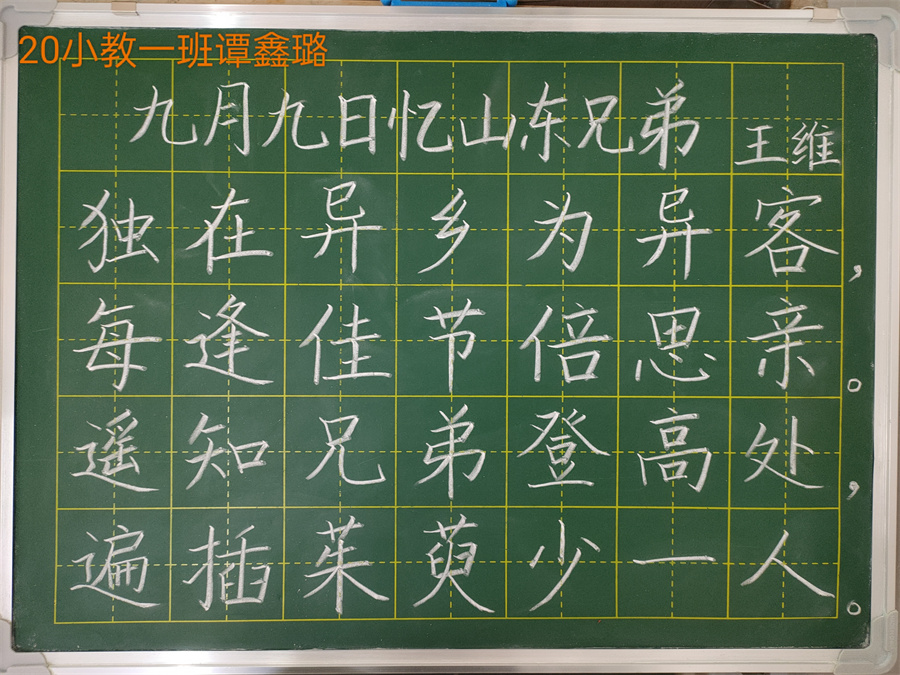 20小教一班谭鑫璐
九月九日忆山东兄弟 王维
独在异乡为异客，
每逢佳节倍思亲。
遥知兄弟登高处，
遍插茱萸少一人。